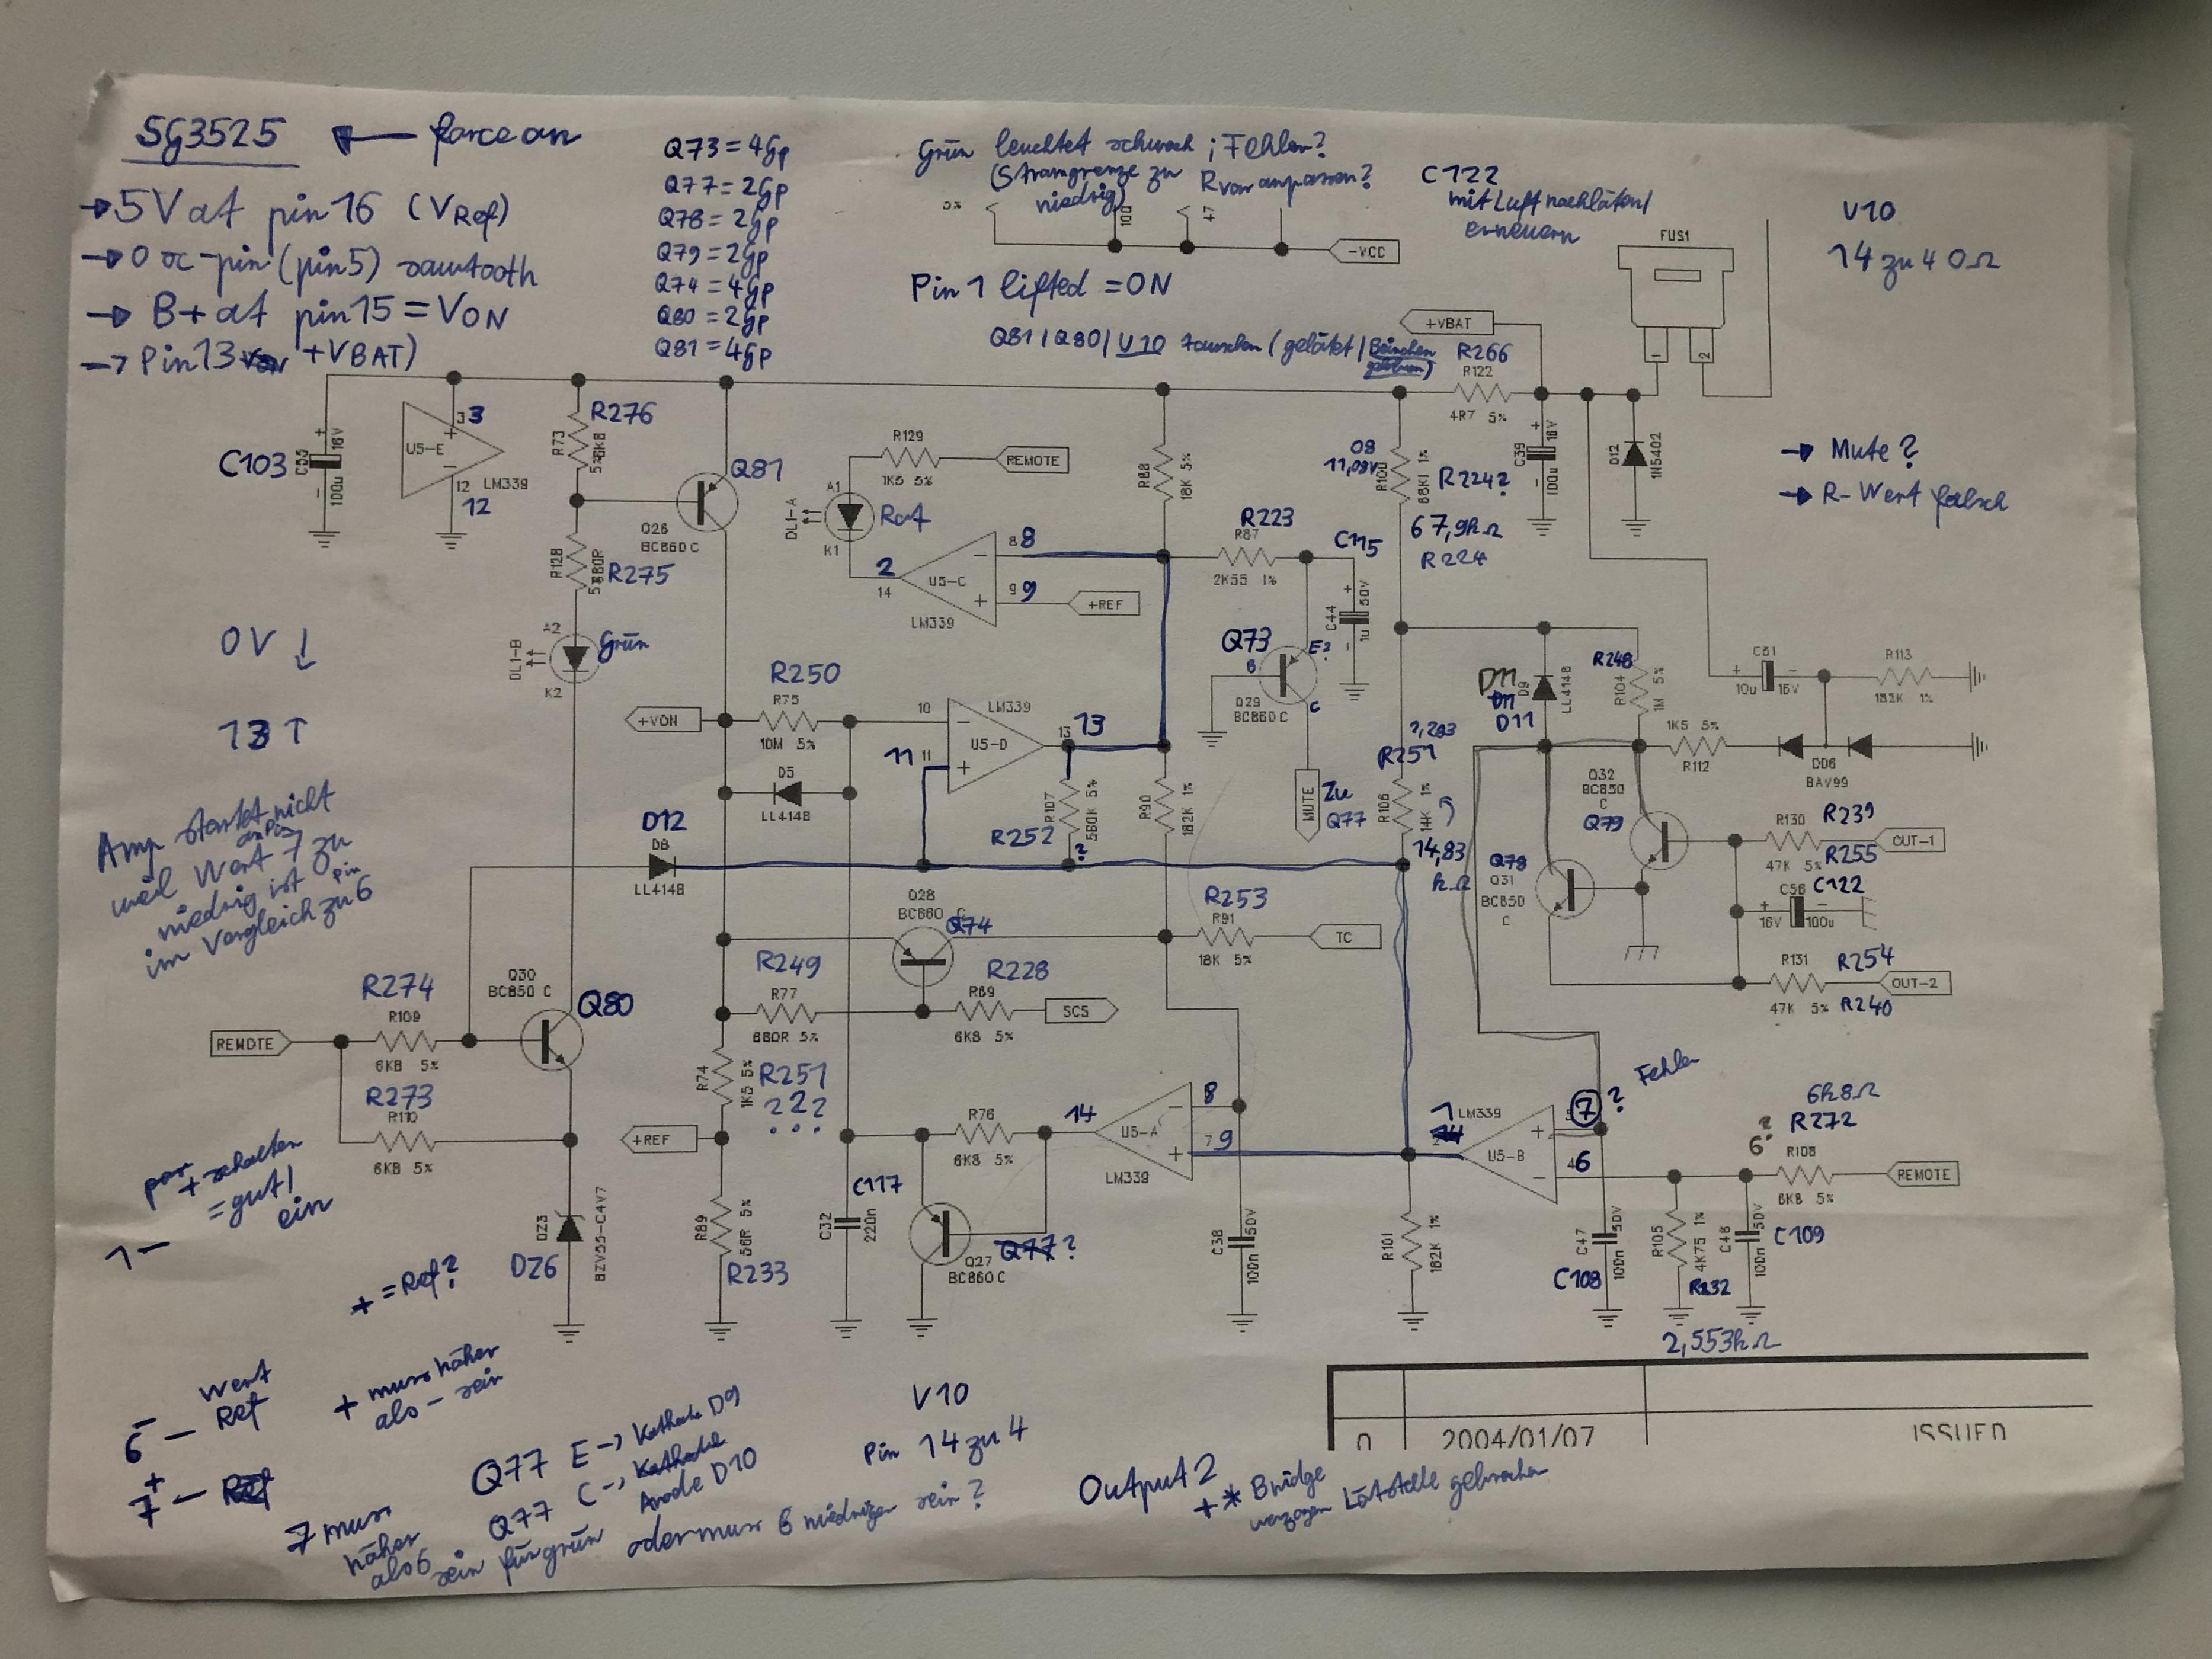 SG3525 ← force on
→ 5V at pin 16 (VRef)
→ Osc-pin (pin5) sawtooth
→ B+ at pin 15 = VON
→ Pin 13 +VBAT)
Q73 = 4Gp
Q77 = 2Gp
Q78 = 2Gp
Q79 = 2Gp
Q74 = 4Gp
Q80 = 2Gp
Q81 = 4Gp
Grün leuchtet schwach ; Fehler?
(Stromgrenze zu niedrig) Rvor anpassen?
100
47
-VCC
Pin 1 lifted = ON
Q81 / Q80 / U10 tauschen (gelötet / Beinchen
C122
mit Luft nachlöten /
erneuern
FUS1
1
2
V10
14 zu 4 0Ω
+VBAT
R266
R122
4R7 5%
C103
C35
100u
16V
U5-E
3 3
12
12
LM339
R276
R73
R128
R275
A2
DL1-B
K2
Grün
Q81
Q26
BC860 C
R129
1K5 5%
REMOTE
A1
DL1-A
K1
Rot
2
14
U5-C
8 8
9 9
LM339
+REF
R88
18K 5%
R223
R87
2K55 1%
C115
C44
1u
50V
Q73
E?
B
C
Q29
BC860 C
MUTE
Zu
Q77
08
11,08V
R100
68K1 1%
R224?
67,9kΩ
R224
C39
100u
16V
D12
1N5402
→ Mute?
→ R-Wert falsch
0V ↓
13 ↑
Amp startet nicht
weil Wert an Pin 7 zu
niedrig ist
im Vergleich zu Pin 6
+VON
R250
R75
10M 5%
D5
LL4148
10
11 11
U5-D
LM339
13
13
R107
560K 5%
R252
?
R90
182K 1%
R251
R106
14K 1%
14,83
kΩ
D11
D11
D9
LL4148
R248
R104
1M 5%
C51
10u 16V
R113
182K 1%
1K5 5%
R112
DD6
BAV99
Q32
BC850
C
Q79
Q78
Q31
BC850
C
R130
R239
47K 5%
R255
OUT-1
C56
C122
16V 100u
R131
R254
47K 5%
R240
OUT-2
D12
D8
LL4148
Q28
BC860 C
Q74
R253
R91
18K 5%
TC
R249
R77
680R 5%
R228
R69
6K8 5%
SCS
R274
R109
6K8 5%
R273
R110
6K8 5%
REMOTE
Q30
BC850 C
Q80
DZ3
BZV55-C4V7
DZ6
R74
1K5 5%
R251
???
+REF
R89
56R 5%
R233
C117
C32
220n
R76
6K8 5%
Q27
BC860 C
Q77?
14
U5-A
LM339
8
7 9
C38
100n
50V
1
LM339
U5-B
7 ? Fehler
4 6
R101
182K 1%
C47
100n
50V
C108
R105
4K75 1%
R232
2,553kΩ
C46
100n
50V
C109
6?
6k8Ω
R272
R108
6K8 5%
REMOTE
+ schalten
= gut /
ein
1 –
+ = Ref?
Wert
6 – Ref
7 – Ref
+ muss näher
als – sein
7 muss
näher
als 6 sein für grün oder muss 6 niedriger sein?
Q77 E → Kathode D9
Q77 C → Kathode
Anode D10
V10
Pin 14 zu 4
Output 2
+ * Bridge
Lötstelle gebrochen
0
2004/01/07
ISSUED